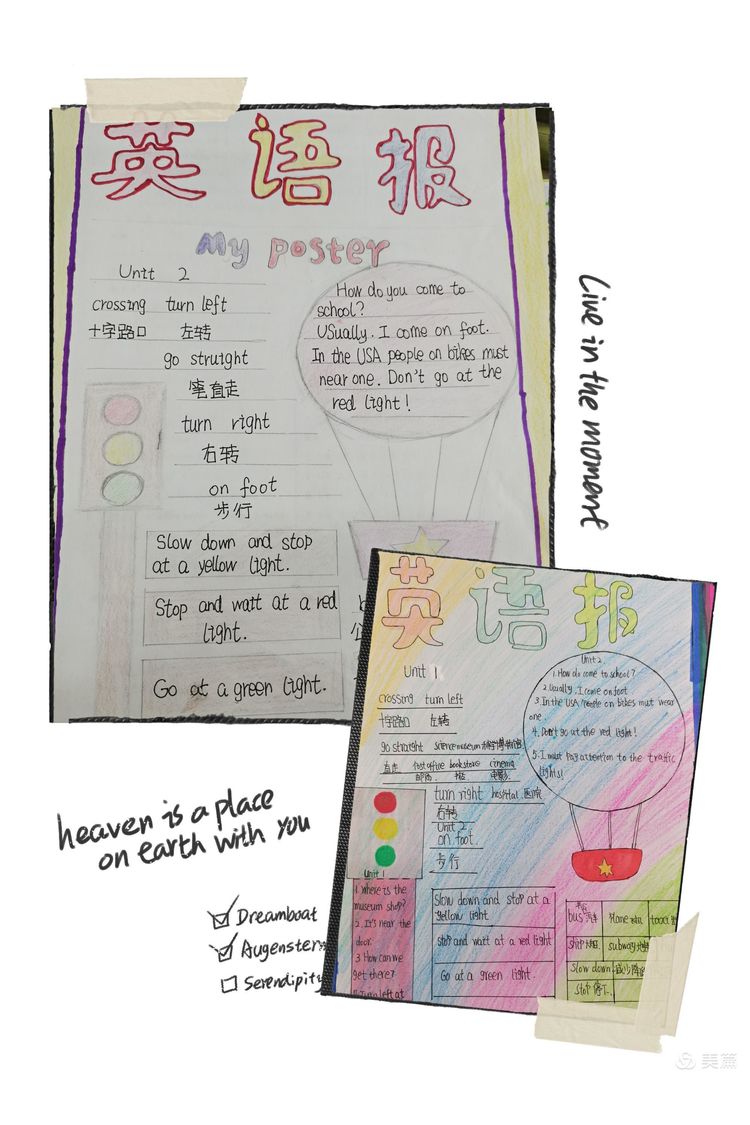 英语报
My poster
Unit 2
crossing turn left
十字路口 左转
go struight
直走
turn right
右转
on foot
步行
How do you come to
school?
Usually. I come on foot.
In the USA people on bikes must
near one. Don't go at the
red light!
Slow down and stop
at a yellow light.
Stop and watt at a red
light.
Go at a green light.
Live in the moment
英语报
Unit 1
crossing turn left
十字路口 左转
go straight science museum
直走 Post office bookstore cinema
邮局 电影
turn right hospital 医院
右转
Unit 2
on foot
步行
Unit 2
1. How do come to school?
2. Usually. I come on foot
3. In the USA people on bikes mut wear
one
4. Don't go at the red light!
5. I must Pay attention to the traffic
lights!
Unit 1
1. Where is the
museum shop?
2. It's near the
door.
3 How can we
get there?
Turn left at
Slow down and stop at a
yellow light
Stop and watt at a red light
Go at a green light.
bus Plane
ship subway
Slow down 减少
Stop 停下
heaven is a place
on earth with you
Dreamboat
Augenstern
Serendipity
美篇